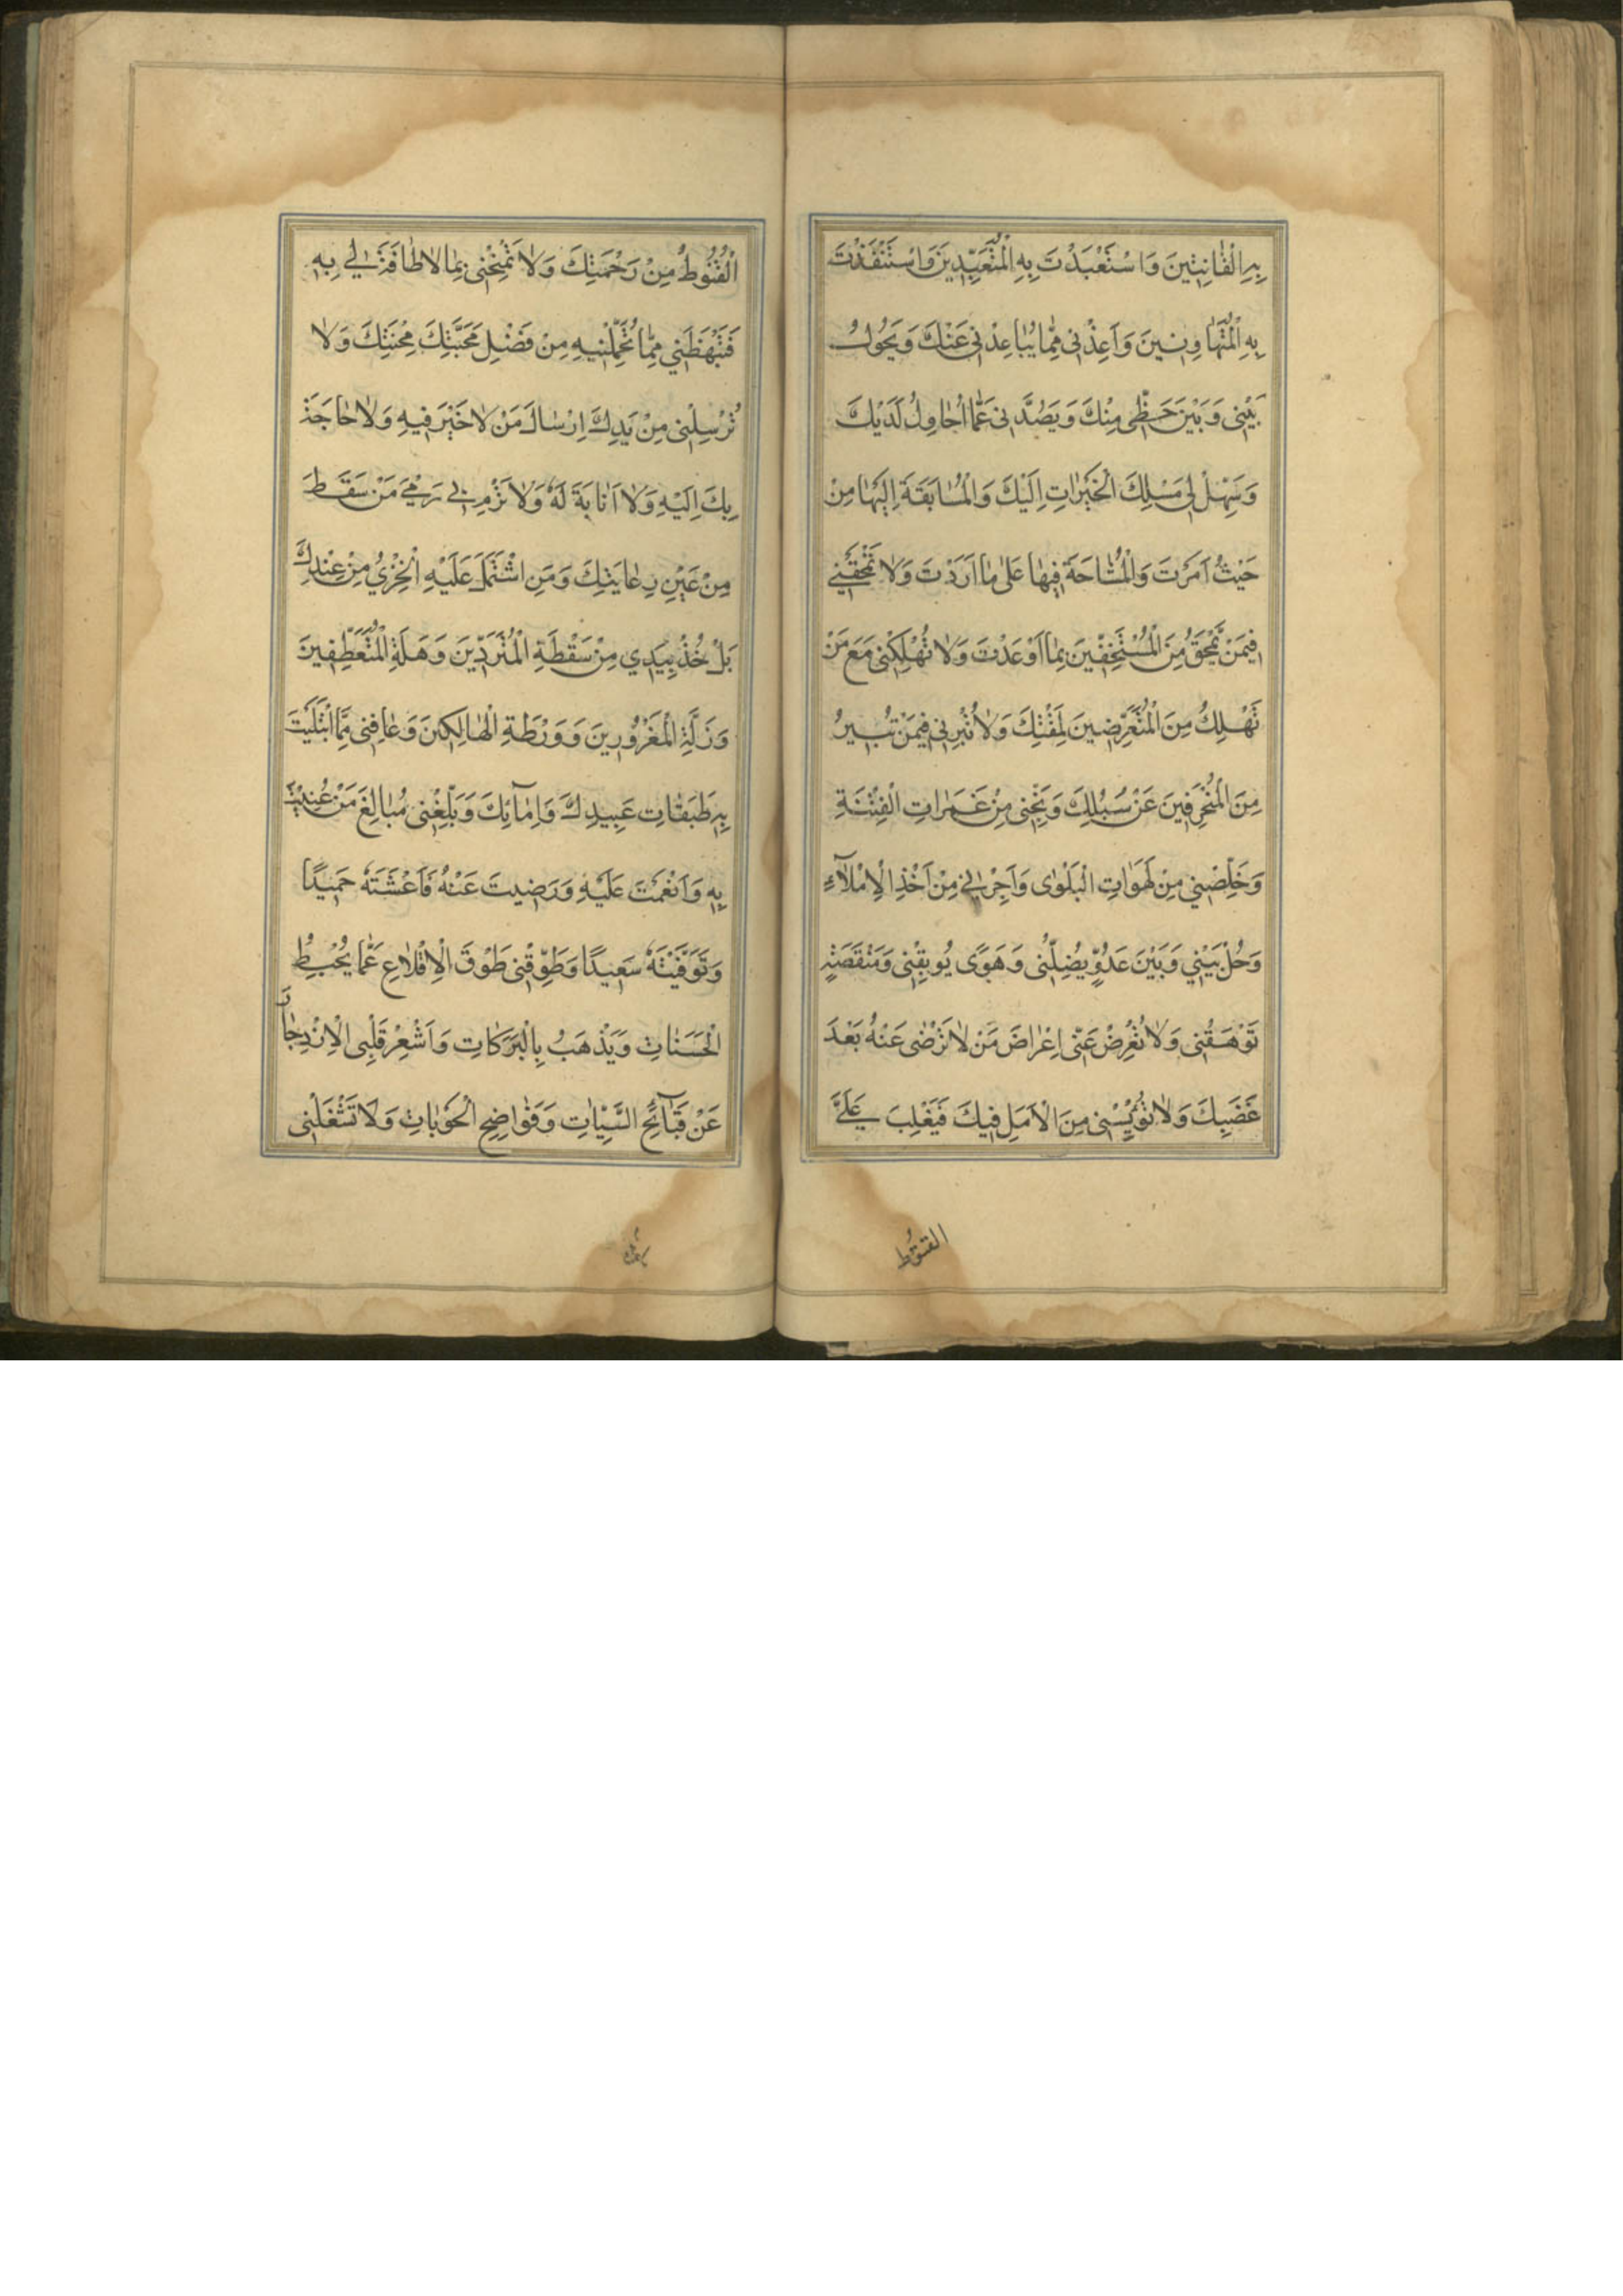 بِهِ الْقَانِتِينَ وَاسْتَعْبَدْتَ بِهِ الْمُتَعَبِّدِينَ وَاسْتَنْقَذْتَ
بِهِ الْمُتَهَاوِنِينَ وَاَعِذْنِي مِمَّا يُبَاعِدُنِي عَنْكَ وَيَحُولُ
بَيْنِي وَبَيْنَ حَظِّي مِنْكَ وَيَصُدَّنِي عَمَّا اُحَاوِلُ لَدَيْكَ
وَسَهِّلْ لِي مَسْلِكَ الْخَيْرَاتِ اِلَيْكَ وَالْمُسَابَقَةَ اِلَيْهَا مِنْ
حَيْثُ اَمَرْتَ وَالْمُشَاحَّةَ فِيهَا عَلَى مَا اَرَدْتَ وَلَا تَمْحَقْنِي
فِيمَنْ تَمْحَقُ مِنَ الْمُسْتَخِفِّينَ بِمَا اَوْعَدْتَ وَلَا تُهْلِكْنِي مَعَ مَنْ
تُهْلِكُ مِنَ الْمُتَعَرِّضِينَ لِمَقْتِكَ وَلَا تُتَبِّرْنِي فِيمَنْ تُبِيرُ
مِنَ الْمُنْحَرِفِينَ عَنْ سُبُلِكَ وَنَجِّنِي مِنْ غَمَرَاتِ الْفِتْنَةِ
وَخَلِّصْنِي مِنْ لَهَوَاتِ الْبَلْوَى وَاَجِرْنِي مِنْ اَخْذِ الْاِمْلَآءِ
وَحُلْ بَيْنِي وَبَيْنَ عَدُوٍّ يُضِلُّنِي وَهَوًى يُوبِقُنِي وَمَنْقَصَةٍ
تَرْهَقُنِي وَلَا تُعْرِضْ عَنِّي اِعْرَاضَ مَنْ لَا تَرْضَى عَنْهُ بَعْدَ
غَضَبِكَ وَلَا تُؤْيِسْنِي مِنَ الْاَمَلِ فِيكَ فَيَغْلِبَ عَلَيَّ
القنوط
الْقُنُوطُ مِنْ رَحْمَتِكَ وَلَا تَمْنَحْنِي بِمَا لَا طَاقَةَ لِي بِهِ
فَتَبْهَظَنِي مِمَّا تُحَمِّلُنِيهِ مِنْ فَضْلِ مَحَبَّتِكَ مِحْنَتِكَ وَلَا
تُرْسِلْنِي مِنْ يَدِكَ اِرْسَالَ مَنْ لَا خَيْرَ فِيهِ وَلَا حَاجَةَ
بِكَ اِلَيْهِ وَلَا اَنَابَةَ لَهُ وَلَا تَرْمِ بِي رَمْيَ مَنْ سَقَطَ
مِنْ عَيْنِ رِعَايَتِكَ وَمَنِ اشْتَمَلَ عَلَيْهِ الْخِزْيُ مِنْ عِنْدِكَ
بَلْ خُذْ بِيَدِي مِنْ سَقْطَةِ الْمُتَرَدِّينَ وَهَلَةِ الْمُتَعَطِّفِينَ
وَزَلَّةِ الْمَغْرُورِينَ وَوَرْطَةِ الْهَالِكِينَ وَعَافِنِي مِمَّا ابْتَلَيْتَ
بِهِ طَبَقَاتِ عَبِيدِكَ وَاِمَآئِكَ وَبَلِّغْنِي مَبَالِغَ مَنْ عُنِيتَ
بِهِ وَاَنْعَمْتَ عَلَيْهِ وَرَضِيتَ عَنْهُ فَاَعَشْتَهُ حَمِيدًا
وَتَوَفَّيْتَهُ سَعِيدًا وَطَوِّقْنِي طَوْقَ الْاِقْلَاعِ عَمَّا يُحْبِطُ
الْحَسَنَاتِ وَيَذْهَبُ بِالْبَرَكَاتِ وَاَشْعِرْ قَلْبِي الْاِزْدِجَارَ
عَنْ قَبَآئِحِ السَّيِّئَاتِ وَفَوَاضِحِ الْحَوْبَاتِ وَلَا تَشْغَلْنِي